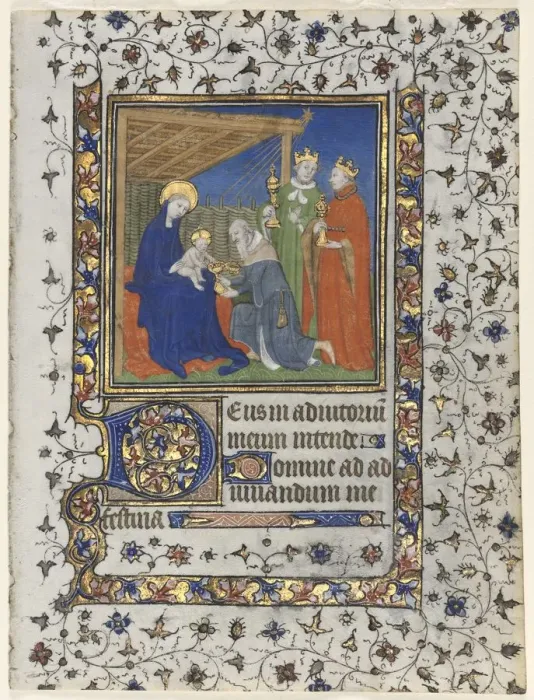 Deus in adiutoriū
meum intende
Domine ad ad
iuuandum me
festina